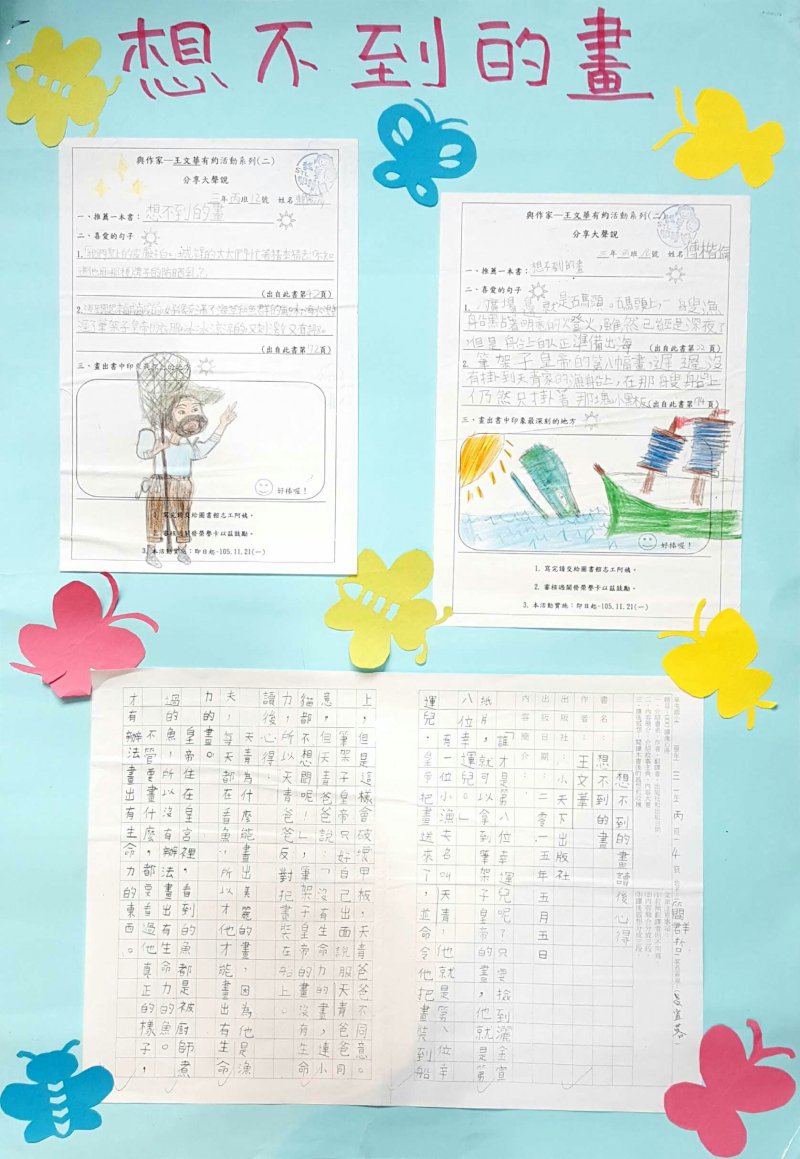 想不到的畫
與作家—王文華有約活動系列(二)
分享大聲說
三年丙班12號 姓名
一、推薦一本書：想不到的畫
二、喜愛的句子
1.
(出自此書第42頁)
2.
(出自此書第72頁)
三、畫出書中印象最深刻的地方
好棒喔！
1. 寫完請交給圖書館志工阿姨。
2. 審核過關發榮譽卡以茲鼓勵。
3. 本活動實施：即日起-105.11.21(一)
與作家—王文華有約活動系列(二)
分享大聲說
三年丙班 號 姓名 傅楷倫
一、推薦一本書：想不到的畫
二、喜愛的句子
1. 廣場邊就是石碼頭。石碼頭上，一艘漁
船點著明亮的燈火，雖然已經是深夜了
，但是船上的人正準備出海
(出自此書第22頁)
2. 筆架子皇帝的第八幅畫，遲遲沒
有掛到天青家的漁船上，在那艘船上
仍然只掛著那塊小黑板
(出自此書第94頁)
三、畫出書中印象最深刻的地方
好棒喔！
1. 寫完請交給圖書館志工阿姨。
2. 審核過關發榮譽卡以茲鼓勵。
3. 本活動實施：即日起-105.11.21(一)
三年丙班4號
想不到的畫讀後心得
書名：想不到的畫
作者：王文華
出版社：小天下出版社
出版日期：二零一五年五月五日
內容簡介：
「誰才是第八位幸運兒呢？只要撿到灑金宣
紙片，就可以拿到筆架子皇帝的畫，他就是第
八位幸運兒。」
有一位小漁夫名叫天青，他就是第八位幸
運兒，皇帝把畫送來了，並命令他把畫裝到船
上，但是這樣會破壞甲板，天青爸爸不同意。
筆架子皇帝只好自己出面說服天青爸爸同
意，但天青爸爸說：「沒有生命力的畫，連小
貓都不想聞呢！」筆架子皇帝的畫沒有生命
力，所以天青爸爸反對把畫裝在船上。
讀後心得：
天青為什麼能畫出美麗的畫，因為他是漁
夫，每天都在看魚，所以他才能畫出有生命
力的畫。
皇帝住在皇宮裡，看到的魚都是被廚師煮
過的魚，所以沒有辦法畫出有生命力的魚。
不管要畫什麼，都要看過他真正的樣子，
才有辦法畫出有生命力的東西。